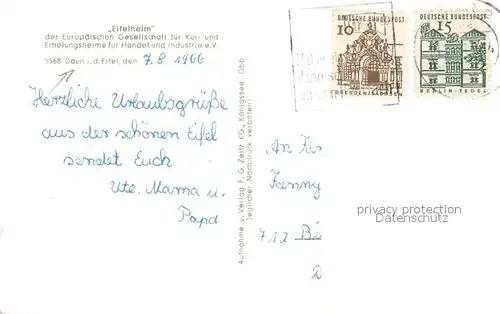 „Eifelheim"
der Europäischen Gesellschaft für Kur- und
Erholungsheime für Handel und Industrie e.V.
5568 Daun i. d. Eifel, den 7.8 1966
Herzliche Urlaubsgrüße
aus der schönen Eifel
sendet Euch
Ute, Mama u.
Papa
Aufnahme u. Verlag F. G. Zeitz KG., Königssee Obb
Jeglicher Nachdruck verboten!
DEUTSCHE BUNDESPOST
10
DRESDEN/SACHSEN
DEUTSCHE BUNDESPOST
15
BERLIN-TEGEL
An Fa
Fanny
privacy protection
Datenschutz
712 Bi
2